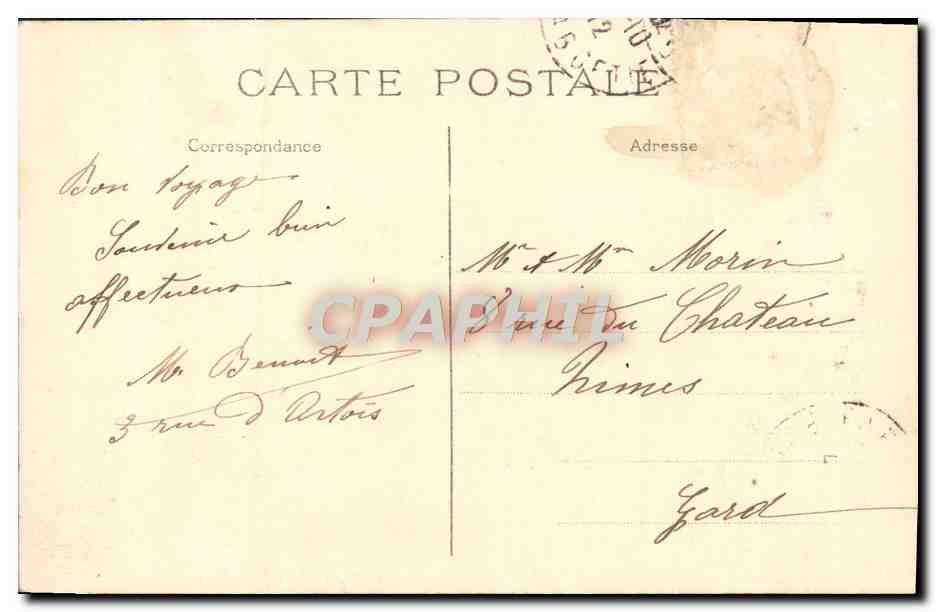 CARTE POSTALE
Correspondance
Bon voyage
Souvenir bien
affectueux
M. Benoit
3 rue d'Artois
Adresse
Mr & Mm Morin
8 rue du Chateau
Nimes
Gard
CPAPHIL